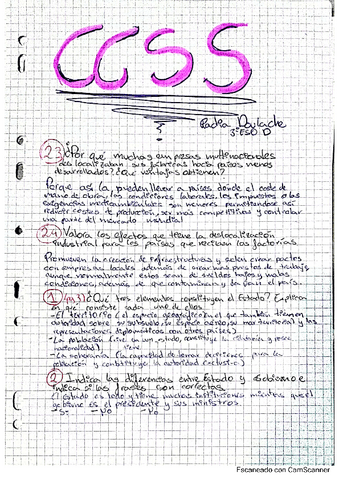 CCSS
3ºESO D
23 ¿Por qué muchas empresas multinacionales
deslocalizaban sus fábricas hacia países menos
desarrollados? ¿Qué ventajas obtienen?
Porque así la pueden llevar a países donde el coste de
mano de obra, las condiciones laborales, los impuestos o las
exigencias medioambientales son menores permitiendo así
reducir costes de producción, ser más competitivos y controlar
una parte del mercado mundial
24 Valora los efectos que tiene la deslocalización
industrial para los países que reciben las factorías
Promueven la creación de infraestructuras y crean pactos
con empresas locales además de crear unos puestos de trabajo
aunque normalmente estos sean de sueldos bajos y malas
condiciones, además de que contaminan y dañan el país.
1 ¿Qué tres elementos constituyen el Estado? Explica
en qué consiste cada uno de ellos
-El territorio (el espacio geográfico en el que también tienen
autoridad sobre su subsuelo, su espacio aéreo y mar territorial y las
representaciones diplomáticas con otros países)
-La población (vive en un estado, constituye la ciudadanía y posee
nacionalidad)
-La soberanía (la capacidad de tomar decisiones para la
población y constituye la autoridad exclusiva)
2 Indica las diferencias entre Estado y Gobierno e
indica si las frases son correctas
El estado es todo y tiene muchas instituciones mientras que el
gobierno es el presidente y sus ministros
-Sí- -No -No
Escaneado con CamScanner